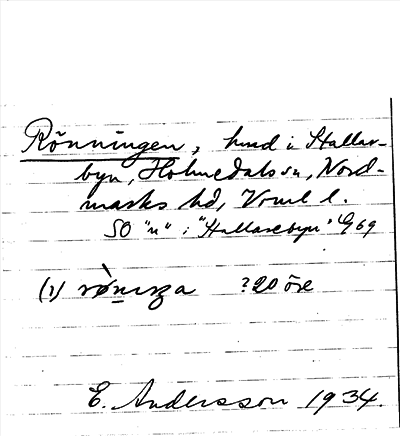 Rönningen, hmd i Hallare-
byn, Holmedals sn, Nord-
marks hd, Vrml l.
SO "n" i "Hallarebyn" G 69
(1) 20 öre
E. Andersson 1934.